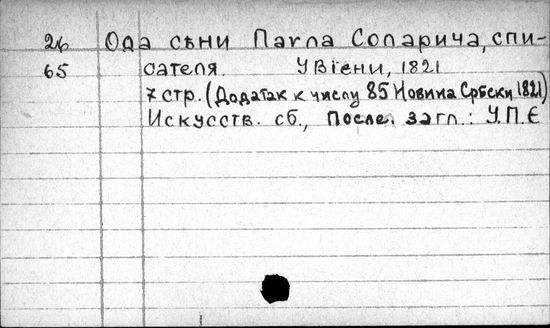 26 Ода сѣни Павла Соларича, спи-
65 сателя. У Вiени, 1821
7 стр. (Додатак к числу 85 Новина Србски 1821)
Искусств. сб., После загл.: У.П.Є